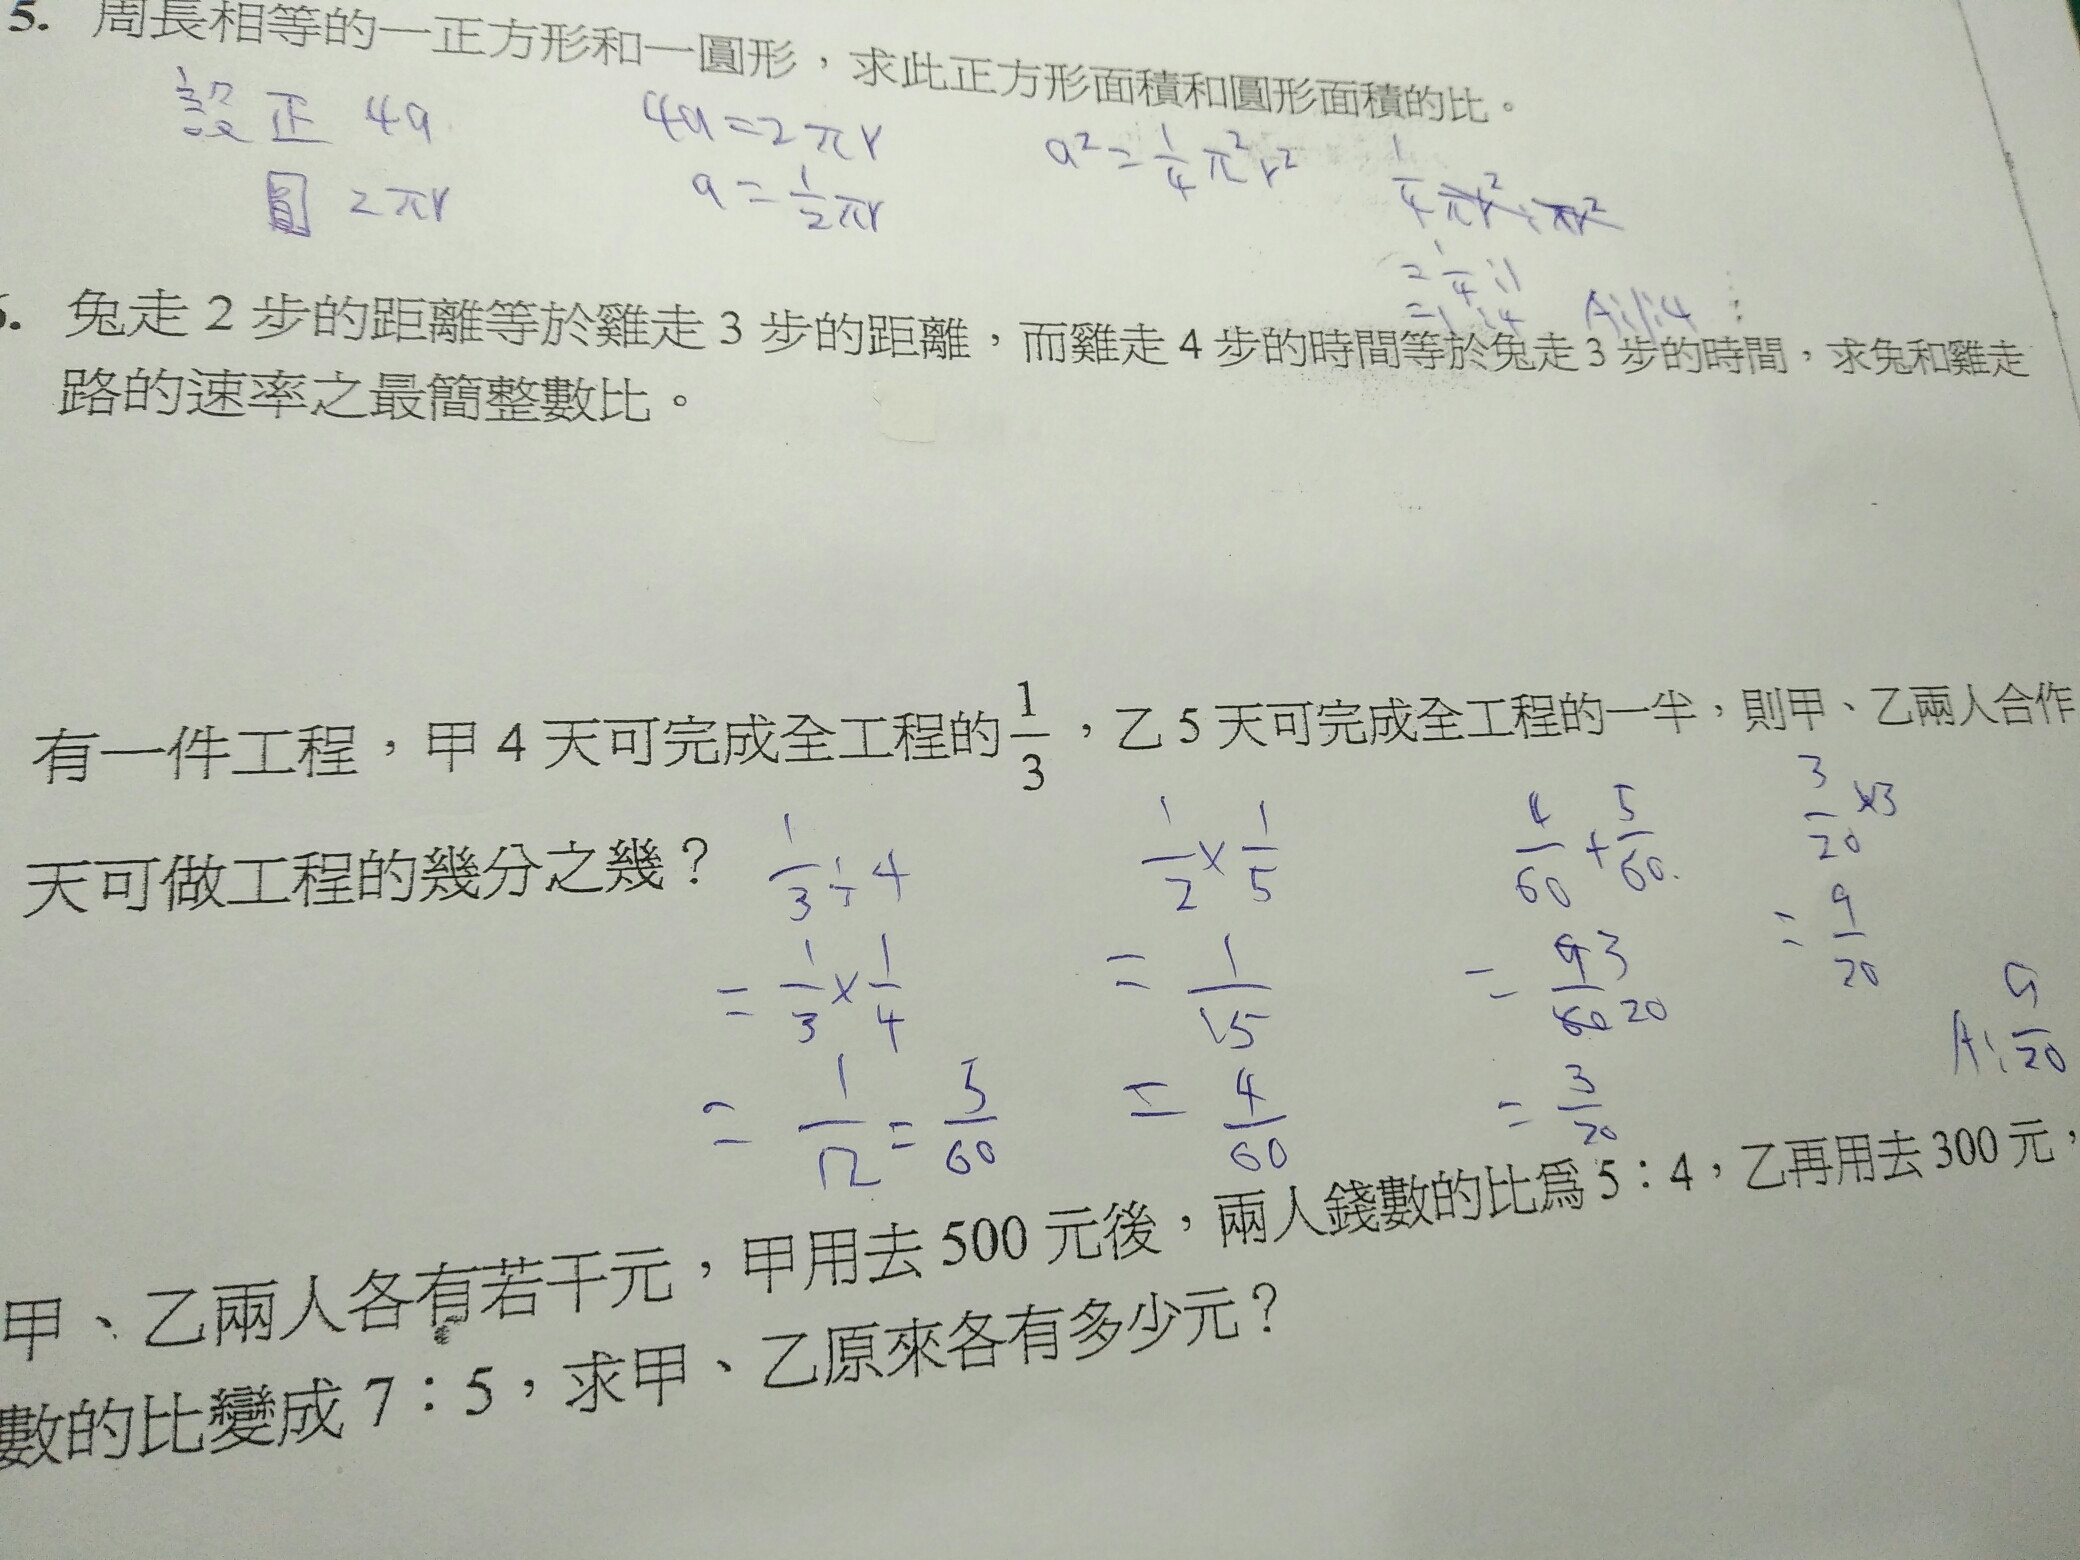 5. 周長相等的一正方形和一圓形，求此正方形面積和圓形面積的比。
設 正 4a
4a=2πr
a²=1/4π²r²
圓 2πr
a=1/2πr
1/4πr²:πr²
=1/4:1
=1:4
A:1:4
兔走 2 步的距離等於雞走 3 步的距離，而雞走 4 步的時間等於兔走 3 步的時間，求兔和雞走
路的速率之最簡整數比。
有一件工程，甲 4 天可完成全工程的1/3，乙 5 天可完成全工程的一半，則甲、乙兩人合作
天可做工程的幾分之幾？
1/3÷4
=1/3×1/4
=1/12=5/60
1/2×1/5
=1/15
=4/60
4/60+5/60
=9/60 3/20
=3/20
3/20×3
=9/20
A:9/20
甲、乙兩人各有若干元，甲用去 500 元後，兩人錢數的比爲 5：4，乙再用去 300 元，
數的比變成 7：5，求甲、乙原來各有多少元？